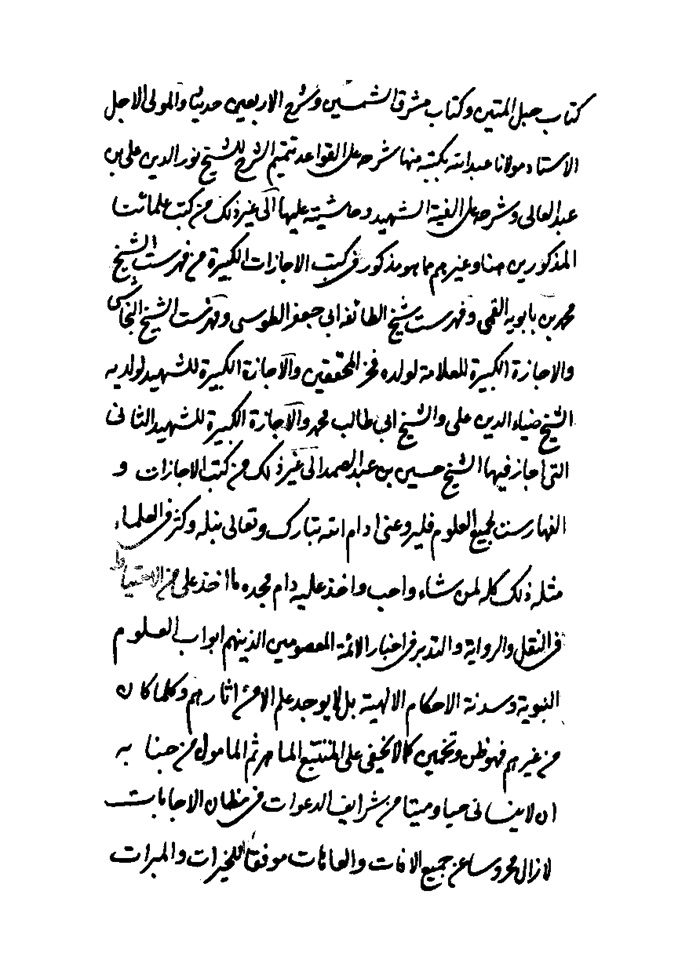 كتاب حبل المتين وكتاب مشرق الشمسين وشرح الاربعين حديثا والمولى الاجل
الاستاد مولانا عبد الله بكتبه منها شرحه على القواعد تتميم الشرح للشيخ نور الدين على بن
عبد العالى وشرحه على الفية الشهيد وحاشيته عليها الى غير ذلك من كتب علمائنا
المذكورين هنا وغيرهم مما هو مذكور فى كتب الاجازات الكبيرة من فهرست الشيخ
محمد بن بابويه القمى وفهرست شيخ الطائفه ابى جعفر الطوسى وفهرست الشيخ النجاشى
والاجازة الكبيرة للعلامة لولده فخر المحققين والاجازة الكبيرة للشهيد لولديه
الشيخ ضياء الدين على والشيخ ابى طالب محمد والاجازة الكبيرة للشهيد الثانى
التى اجاز فيها الشيخ حسين بن عبد الصمد الى غير ذلك من كتب الاجازات و
الفهارست لجميع العلوم فليرو عنى ادام الله تبارك وتعالى نبله وكثر فى العلماء
مثله ذلك كله لمن شاء واحب واخذ عليه دام مجده ما اخذ على من الاحتياط
فى النقل والرواية والتدبر فى اخبار الائمة المعصومين الذينهم ابواب العلوم
النبوية وسدنة الاحكام الالهية بل لا يوجد علم الا من اثارهم وكلما كان
من غيرهم فهو ظن وتخمين كما لا يخفى على المتتبع الماهر ثم المامول من جنابه
ان لا ينسانى حيا وميتا من شرايف الدعوات فى مظان الاجابات
لا زال محروسا عن جميع الافات والعاهات موفقا للخيرات والمبرات